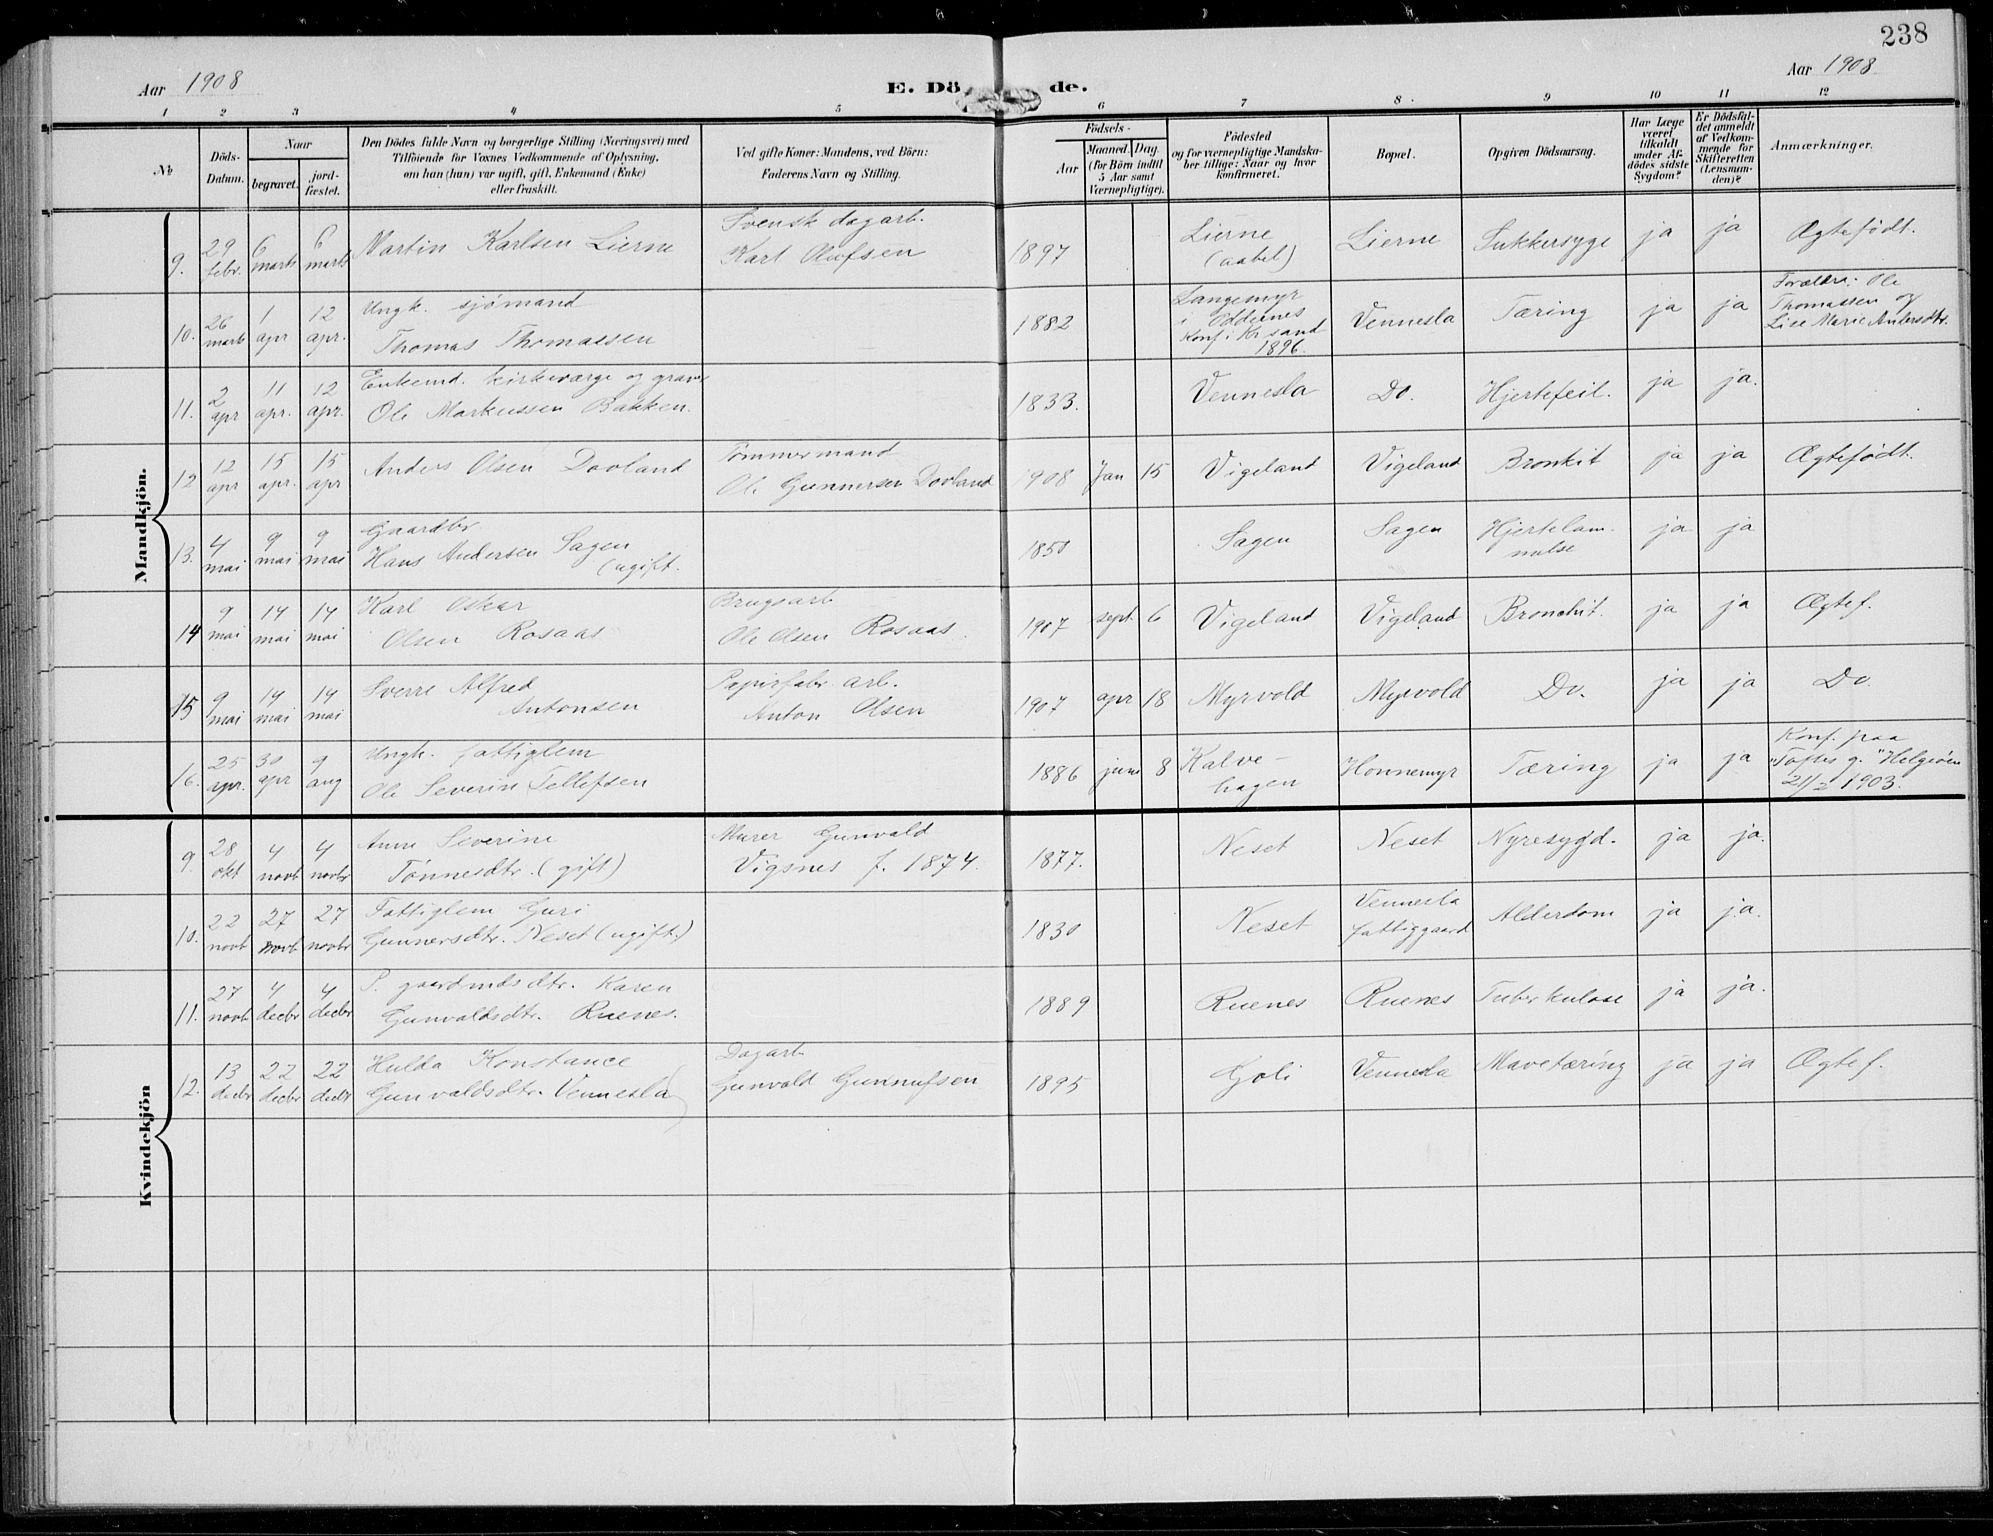 238
Aar 1908
E. Dö de.
Aar 1908
1 2 3 4 5 6 7 8 9 10 11 12
No
Döds-Datum.
Naar
begravet.
jord-fæstet.
Den Dödes fulde Navn og borgerlige Stilling (Næringsvei) med
Tilföiende for Voxnes Vedkommende af Oplysning,
om han (hun) var ugift, gift, Enkemand (Enke)
eller fraskilt.
Ved gifte Koner: Mandens, ved Börn:
Faderens Navn og Stilling.
Födsels-
Aar
Maaned.
Dag.
(for Börn indtil
5 Aar samt
Værnepligtige).
Födested
og for værnepligtige Mandska-
ber tillige: Naar og hvor
konfirmeret.
Bopæl.
Opgiven Dödsaarsag.
Har Læge
været
tilkaldt
under Af-
dödes sidste
Sygdom?
Er Dödsfal-
det anmeldt
af Vedkom-
mende for
Skifteretten
(Lensman-
den)?
Anmærkninger.
Mandkjön.
9. 29 febr. 6 marts 6 marts Martin Karlsen Lierne
Svensk dagarb.
Karl Olufsen
1897 Lierne
(aabel)
Lierne Sukkersyge ja ja Ægtefödt.
10. 26 marts 1 apr 12 apr. Ungk. sjömand
Thomas Thomassen
1882 Langemyr
i Oddernes
Konf i Kr.sand
1896.
Vennesla Tæring ja ja Forældre: Ole
Thomassen og
Lise Marie Andersdtr.
11. 2 apr 11 apr. 12 apr. Enkemd. kirkeværge og graver
Ole Markussen Bakken.
1833. Vennesla Do. Hjertefeil. ja ja.
12 12 apr 15 apr. 15 apr Anders Olsen Dovland
Tömmermand
Ole Gunnersen Dovland
1908 Jan 15 Vigeland Vigeland Bronkit ja ja Ægtefödt.
13. 4 mai 9 mai 9 mai Gaardbr
Hans Andersen Sagen
(ugift.
1850 Sagen Sagen Hjertelam-
melse
ja ja
14 9 mai 14 mai 14 mai Karl Oskar
Olsen Rosaas
Brugsarb.
Ole Olsen Rosaas.
1907 sept. 6 Vigeland Vigeland Bronchit. ja ja Ægtef.
15 9 mai 14 mai 14 mai Sverre Alfred
Antonsen
Papirfabr. arb.
Anton Olsen
1907 apr 18 Myrvold Myrvold Do. ja ja Do.
16. 25 apr. 30 apr 9 aug Ungk. fattiglem
Ole Severin Tellefsen
1886 juni 8 Kalve-
hagen
Honnemyr Tæring ja ja Konf. paa
"Toftes g." Helgeöen
21/2 1903.
Kvindekjön
9. 28 okt 4 novb 4 novbr Anne Severine
Tönnesdtr. (gift)
Murer Gunvald
Vigsnes f. 1874.
1877. Neset Neset Nyresygd. ja ja.
10. 22 novb 27 novb 27 novbr Fattiglem Guri
Gunnersdtr. Neset (ugift.)
1830 Neset Vennesla
fattiggaard
Alderdom ja ja.
11. 27 novb 4 decbr 4 decbr P. gaardmdsdtr. Karen
Gunvaldsdtr. Ruenes.
1889 Ruenes Ruenes Tuberkulose ja ja.
12. 13 decbr 22 decbr 22 decbr Hulda Konstance
Gunvaldsdtr. Vennesla
Dagarb
Gunvald Gunnufsen
1895 Goli Vennesla Mavetæring ja ja Ægtef.